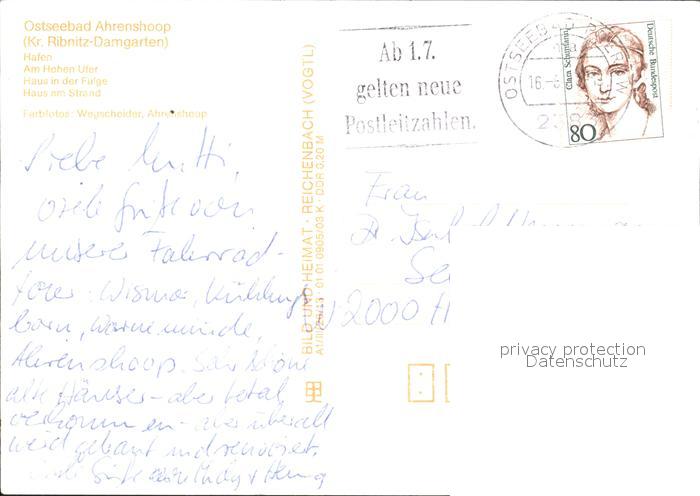 Ostseebad Ahrenshoop
(Kr. Ribnitz-Damgarten)
Hafen
Am Hohen Ufer
Haus in der Fulge
Haus am Strand
Farbfotos: Wegscheider, Ahrenshoop
Ab 1.7.
gelten neue
Postleitzahlen.
OSTSEEBAD
16.-6
23
Clara Schumann
Deutsche Bundespost
80
BILD UND HEIMAT · REICHENBACH (VOGTL)
01 01 0905/03 K · DDR 0,20 M
Liebe Mutti,
viele Grüße von
unserer Fahrrad-
tour: Wismar, Kühlungs
born, Warnemünde,
Ahrenshoop. Sehr schöne
alte Häuser - aber total
verkommen - aber überall
wird gebaut und renoviert.
Viele Grüße
Frau
Dr.
2000 H
privacy protection
Datenschutz